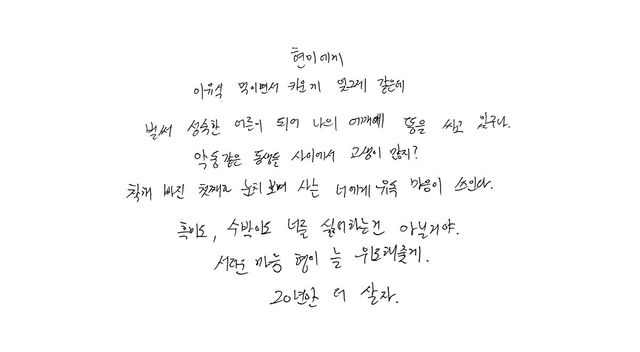 현미에게
이유식 먹이면서 키운게 엊그제 같은데
벌써 성숙한 어른이 되어 나의 어깨에 똥을 싸고 있구나.
악동같은 동생들 사이에서 고생이 많지?
착해 빠진 첫째로 눈치 보며 사는 너에게 유독 마음이 쓰인다.
흑미도, 수박이도 너를 싫어하는건 아닐거야.
서러운 마음 형이 늘 위로해줄게.
20년만 더 살자.